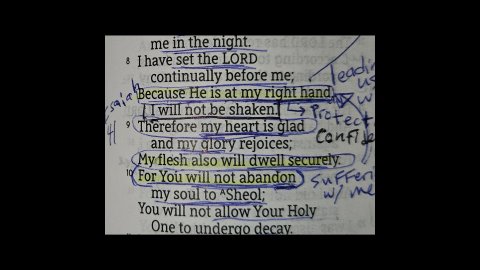 me in the night.
8 I have set the LORD
continually before me;
Because He is at my right hand,
I will not be shaken.
9 Therefore my heart is glad
and my glory rejoices;
My flesh also will dwell securely.
10 For You will not abandon
my soul to ^Sheol;
You will not allow Your Holy
One to undergo decay.
Leadin
us
w
→ Protect
Confide
Suffer
w/ me